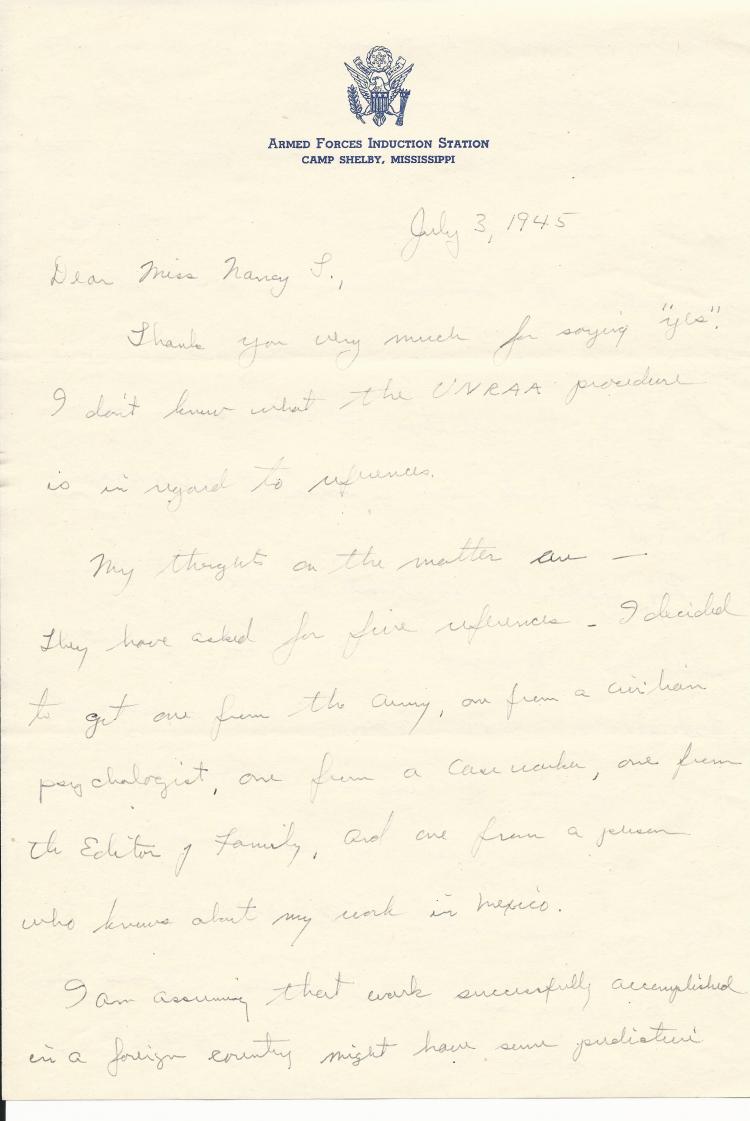 ARMED FORCES INDUCTION STATION
CAMP SHELBY, MISSISSIPPI
July 3, 1945
Dear Miss Nancy S.,
Thank you very much for saying "yes".
I don't know what the UNRAA procedure
is in regard to references.
My thoughts on the matter are —
They have asked for five references - I decided
to get one from the Army, one from a civilian
psychologist, one from a caseworker, one from
the Editor of Family, and one from a person
who knows about my work in Mexico.
I am assuming that work successfully accomplished
in a foreign country might have some predictive